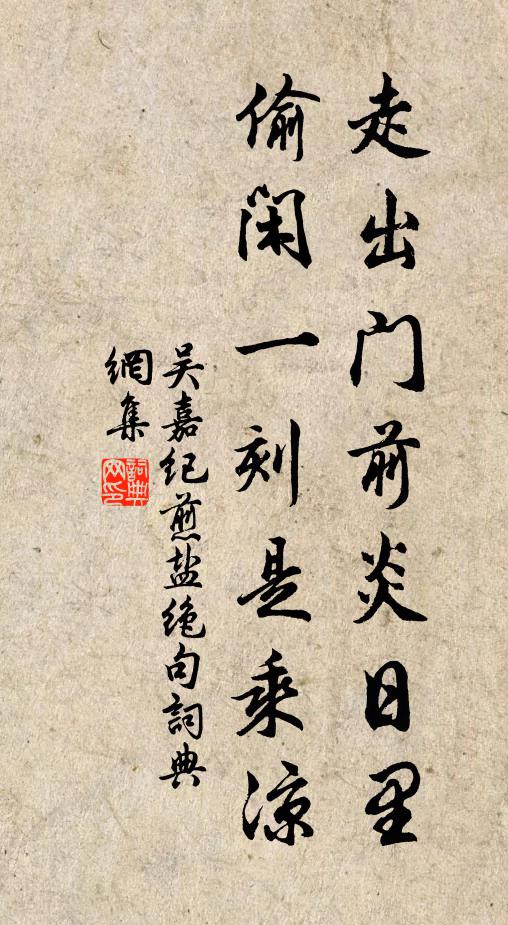 走出门前炎日里
偷闲一刻是乘凉
吴嘉纪煎盐绝句詞典
網集
詞典
网印